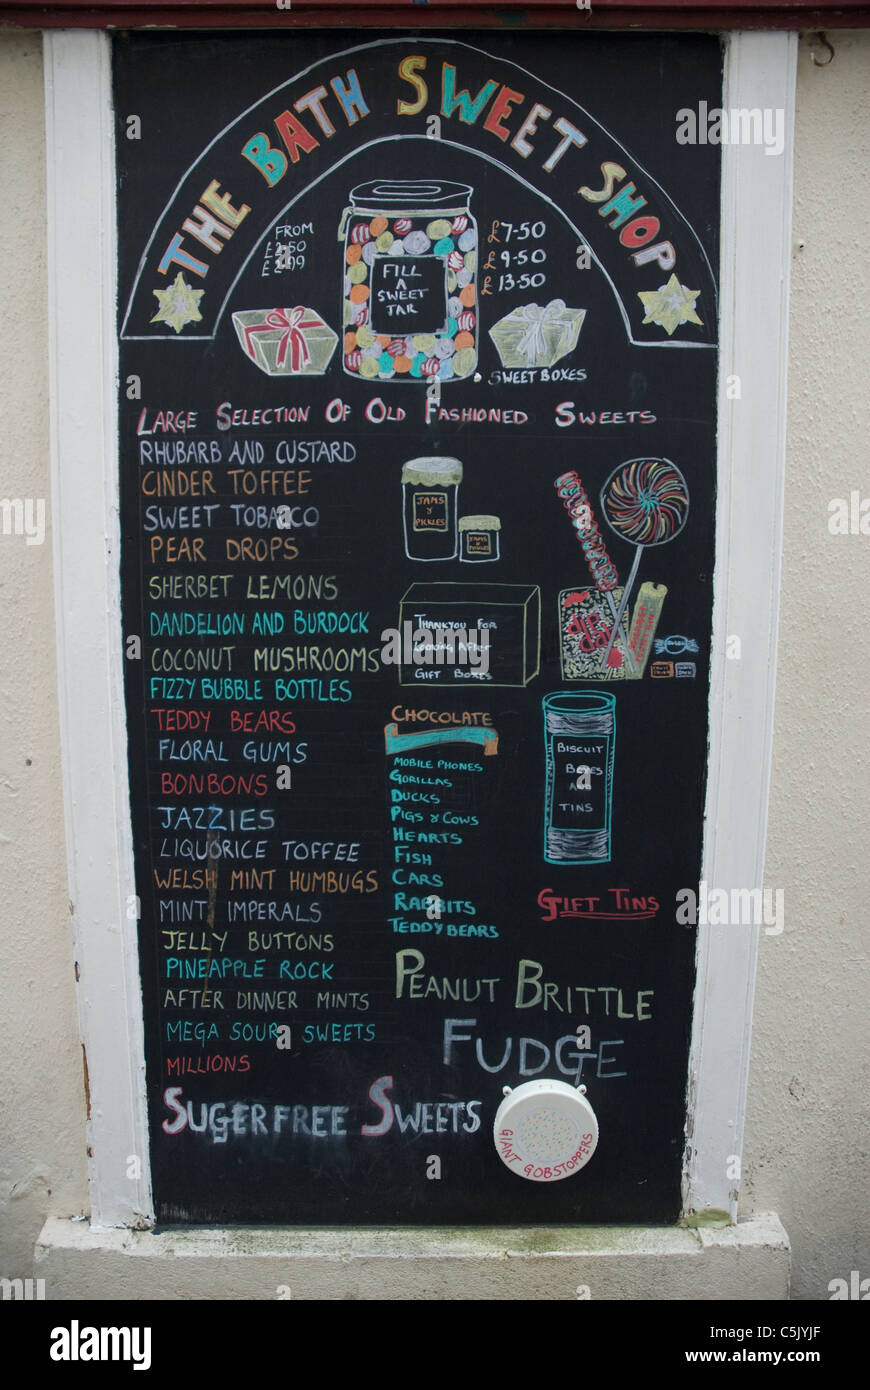 THE BATH SWEET SHOP
FROM
£2.50
£2.99
FILL
A
SWEET
JAR
£7-50
£9-50
£13-50
SWEET BOXES
LARGE SELECTION OF OLD FASHIONED SWEETS
RHUBARB AND CUSTARD
CINDER TOFFEE
SWEET TOBACCO
PEAR DROPS
SHERBET LEMONS
DANDELION AND BURDOCK
COCONUT MUSHROOMS
FIZZY BUBBLE BOTTLES
TEDDY BEARS
FLORAL GUMS
BONBONS
JAZZIES
LIQUORICE TOFFEE
WELSH MINT HUMBUGS
MINT IMPERALS
JELLY BUTTONS
PINEAPPLE ROCK
AFTER DINNER MINTS
MEGA SOUR SWEETS
MILLIONS
SUGERFREE SWEETS
JAMS
&
PICKLES
JAMS
&
dip
dab
THANKYOU FOR
LOOKING AFTER
GIFT BOXES
CHOCOLATE
MOBILE PHONES
GORILLAS
DUCKS
PIGS & COWS
HEARTS
FISH
CARS
RABBITS
TEDDY BEARS
BISCUIT
BOXES
AND
TINS
GIFT TINS
PEANUT BRITTLE
FUDGE
GIANT GOBSTOPPERS
a alamy
alamy
Image ID: C5JYJF
www.alamy.com